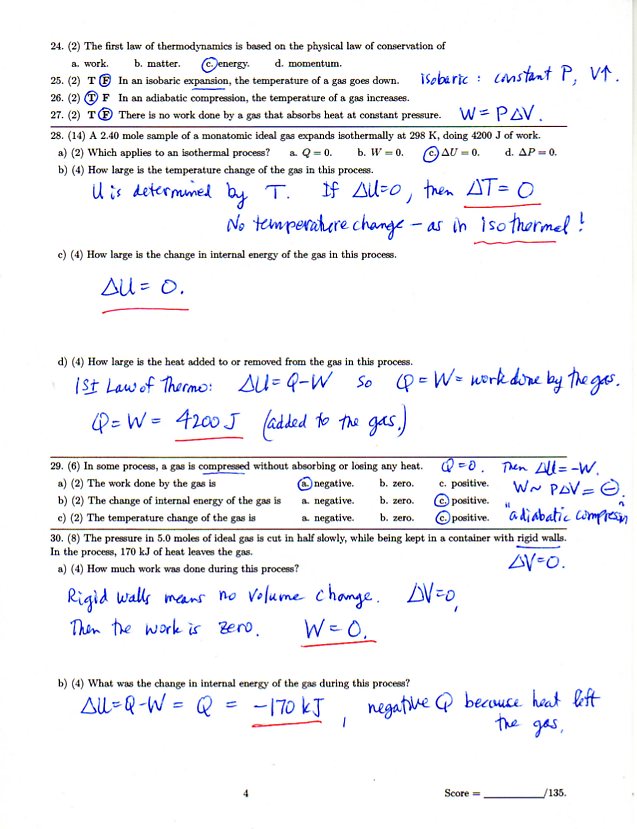 24. (2) The first law of thermodynamics is based on the physical law of conservation of
a. work. b. matter. c. energy. d. momentum.
25. (2) T F In an isobaric expansion, the temperature of a gas goes down. isobaric : constant P, V↑.
26. (2) T F In an adiabatic compression, the temperature of a gas increases.
27. (2) T F There is no work done by a gas that absorbs heat at constant pressure. W = PΔV.
28. (14) A 2.40 mole sample of a monatomic ideal gas expands isothermally at 298 K, doing 4200 J of work.
a) (2) Which applies to an isothermal process? a. Q = 0. b. W = 0. c. ΔU = 0. d. ΔP = 0.
b) (4) How large is the temperature change of the gas in this process.
U is determined by T. If ΔU=0, then ΔT = 0
No temperature change – as in isothermal !
c) (4) How large is the change in internal energy of the gas in this process.
ΔU = 0.
d) (4) How large is the heat added to or removed from the gas in this process.
1st Law of Thermo: ΔU = Q-W so Q = W = work done by the gas.
Q = W = 4200 J (added to the gas.)
29. (6) In some process, a gas is compressed without absorbing or losing any heat. Q=0. Then ΔU=-W.
a) (2) The work done by the gas is a. negative. b. zero. c. positive. W~ PΔV = ⊖
b) (2) The change of internal energy of the gas is a. negative. b. zero. c. positive.
c) (2) The temperature change of the gas is a. negative. b. zero. c. positive. "adiabatic compression"
30. (8) The pressure in 5.0 moles of ideal gas is cut in half slowly, while being kept in a container with rigid walls.
In the process, 170 kJ of heat leaves the gas. ΔV=0.
a) (4) How much work was done during this process?
Rigid walls means no volume change. ΔV=0,
Then the work is zero. W = 0.
b) (4) What was the change in internal energy of the gas during this process?
ΔU=Q-W = Q = -170 kJ, negative Q because heat left
the gas.
4 Score = /135.